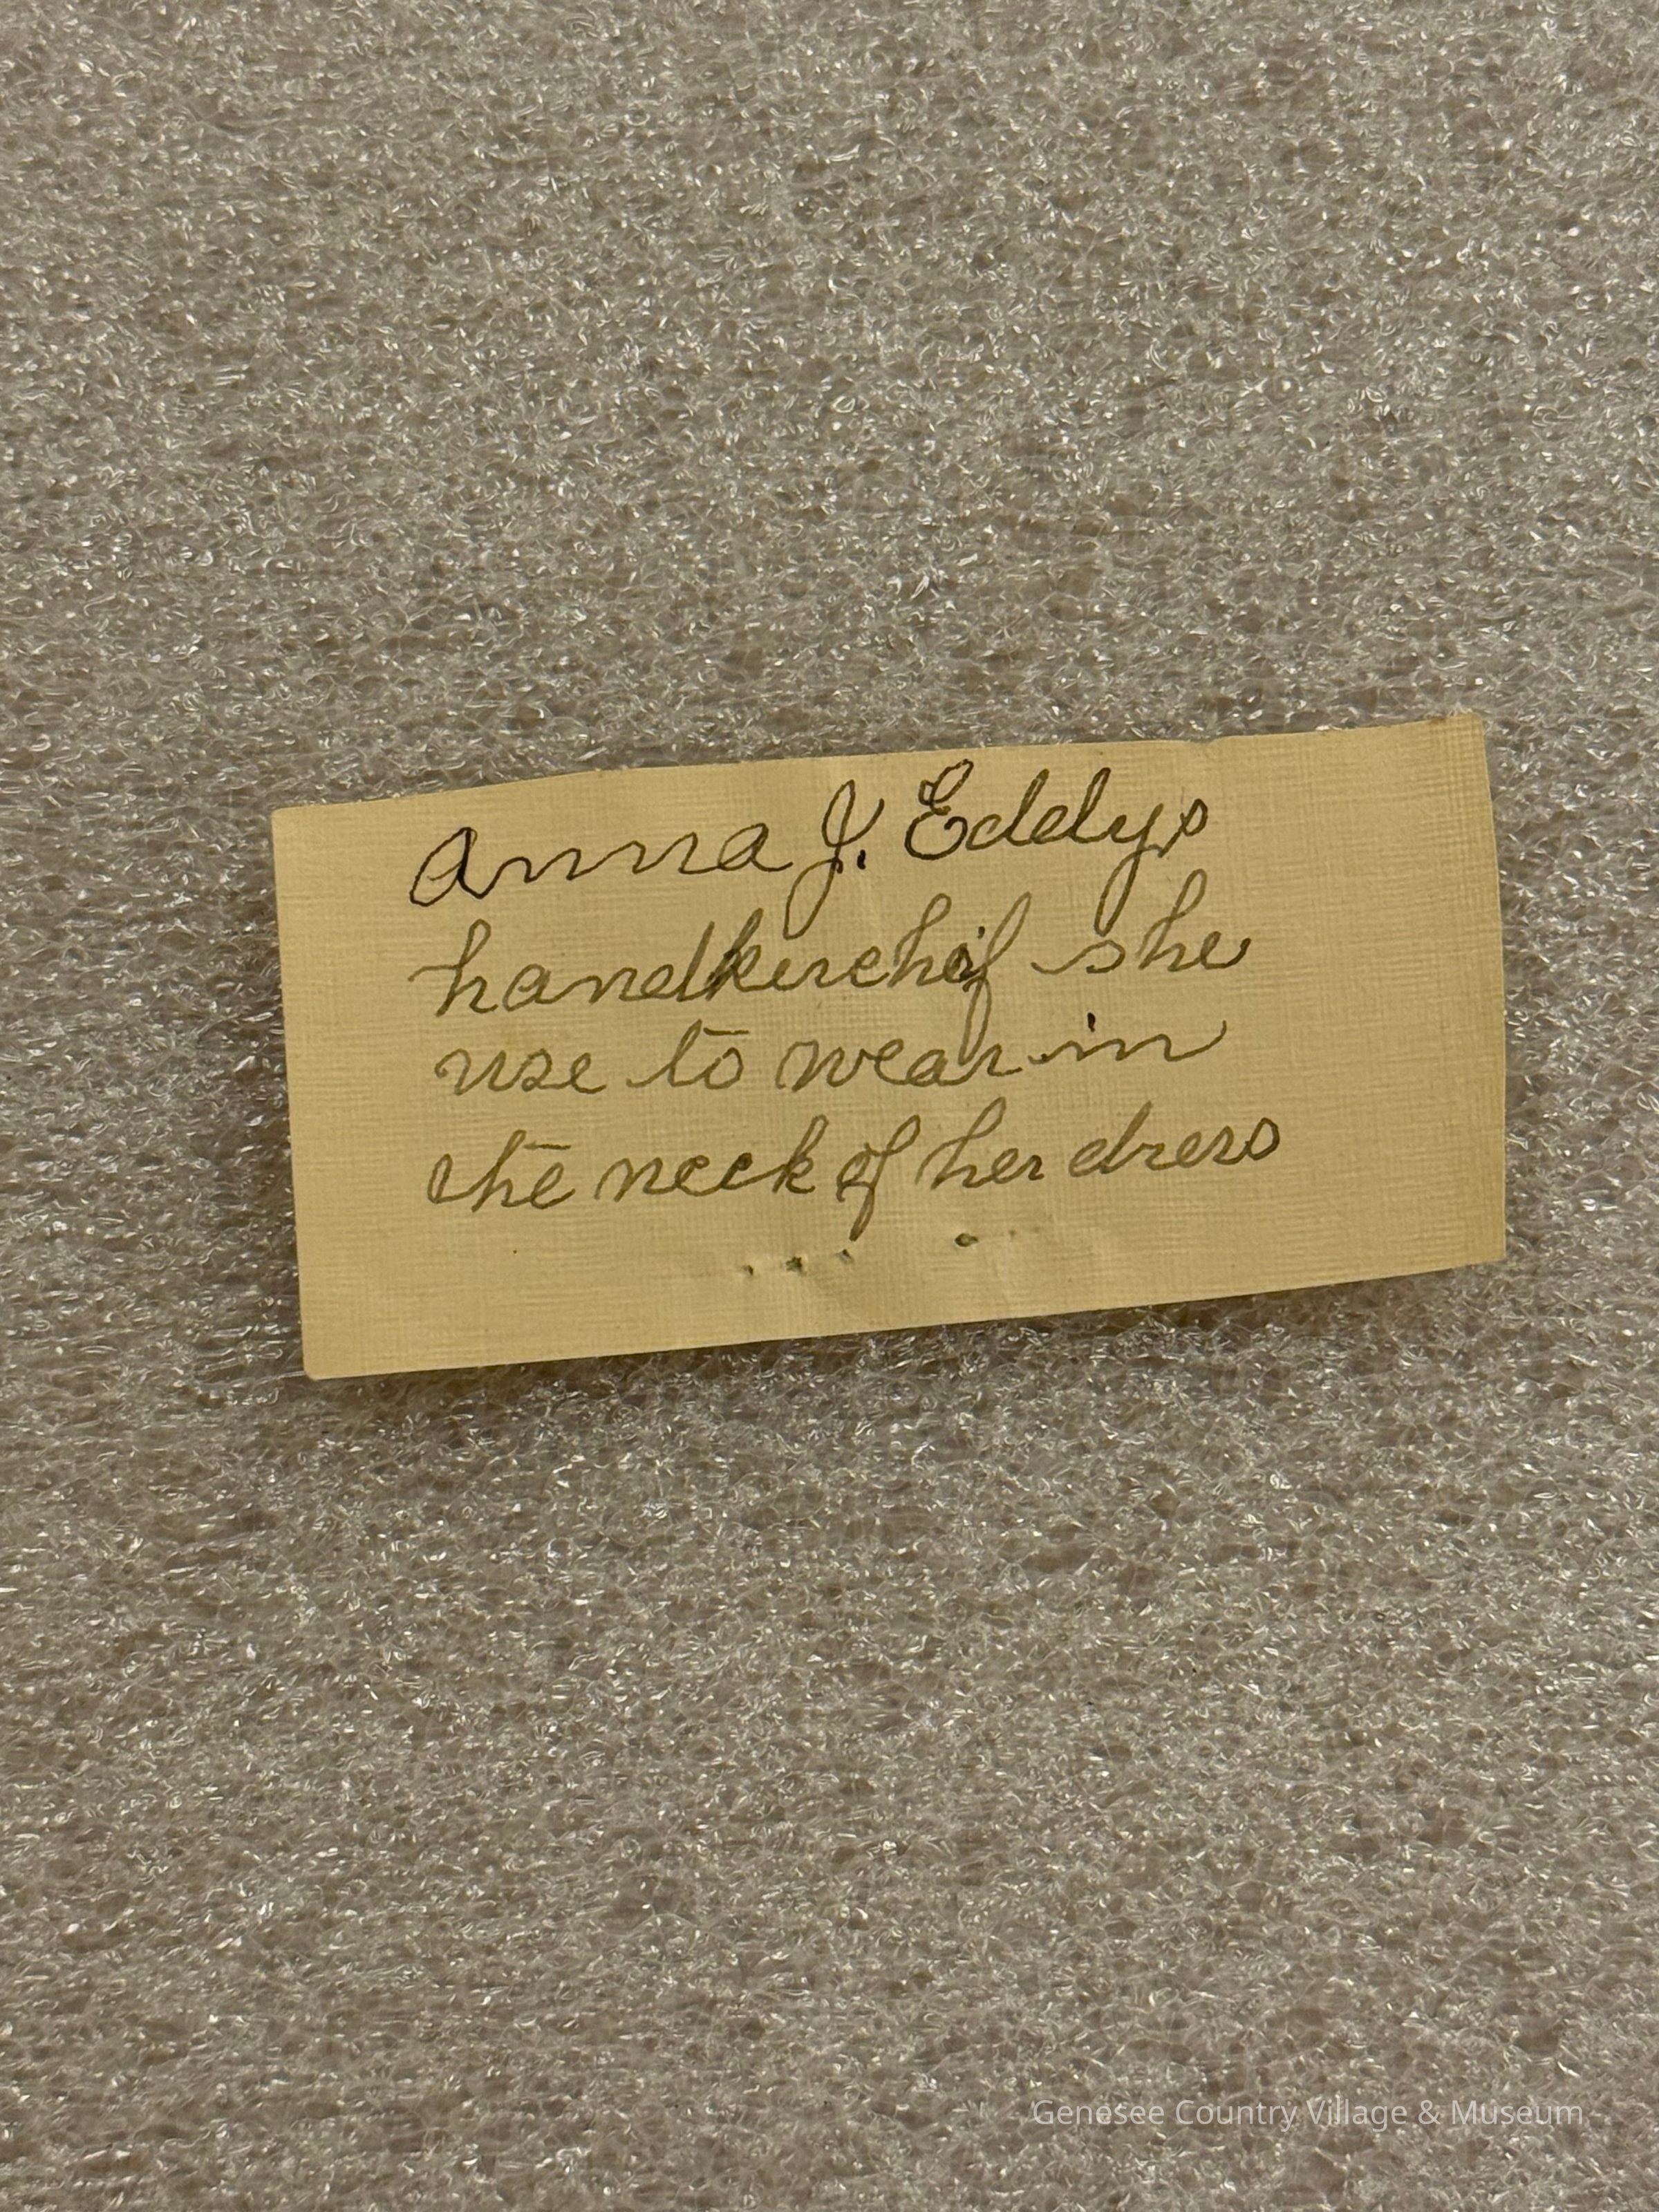 Anna J. Eddys
handkerchif she
use to wear in
the neck of her dress
Genesee Country Village & Museum